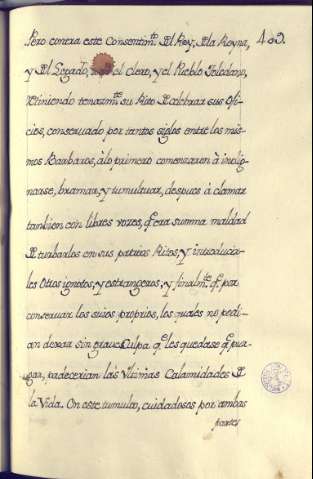 Pero contra este Consentim.to del Rey, de la Reyna, 482.
y del Legado, el Clero, y el Pueblo Toledano,
definiendo tenazm.te su Rito de celebrar sus Ofi-
cios, conservado por tantos siglos entre los mis-
mos Barbaros, álo primero comenzaron à indig-
narse, bramar, y tumultuar, despues à clamar
tambien con libres vozes, q.e era summa maldad
de turbarlos en sus patrios Ritos, y introducir-
les Otros ignotos, y estrangeros; y finalm.te q.e por
conservar los suios proprios, los quales no podi-
an dexar sin grave Culpa q.e les quedase q.e pur-
gar, padecerian las Vltimas Calamidades de
la Vida. En este tumulto, cuidadosos por ambas
partes